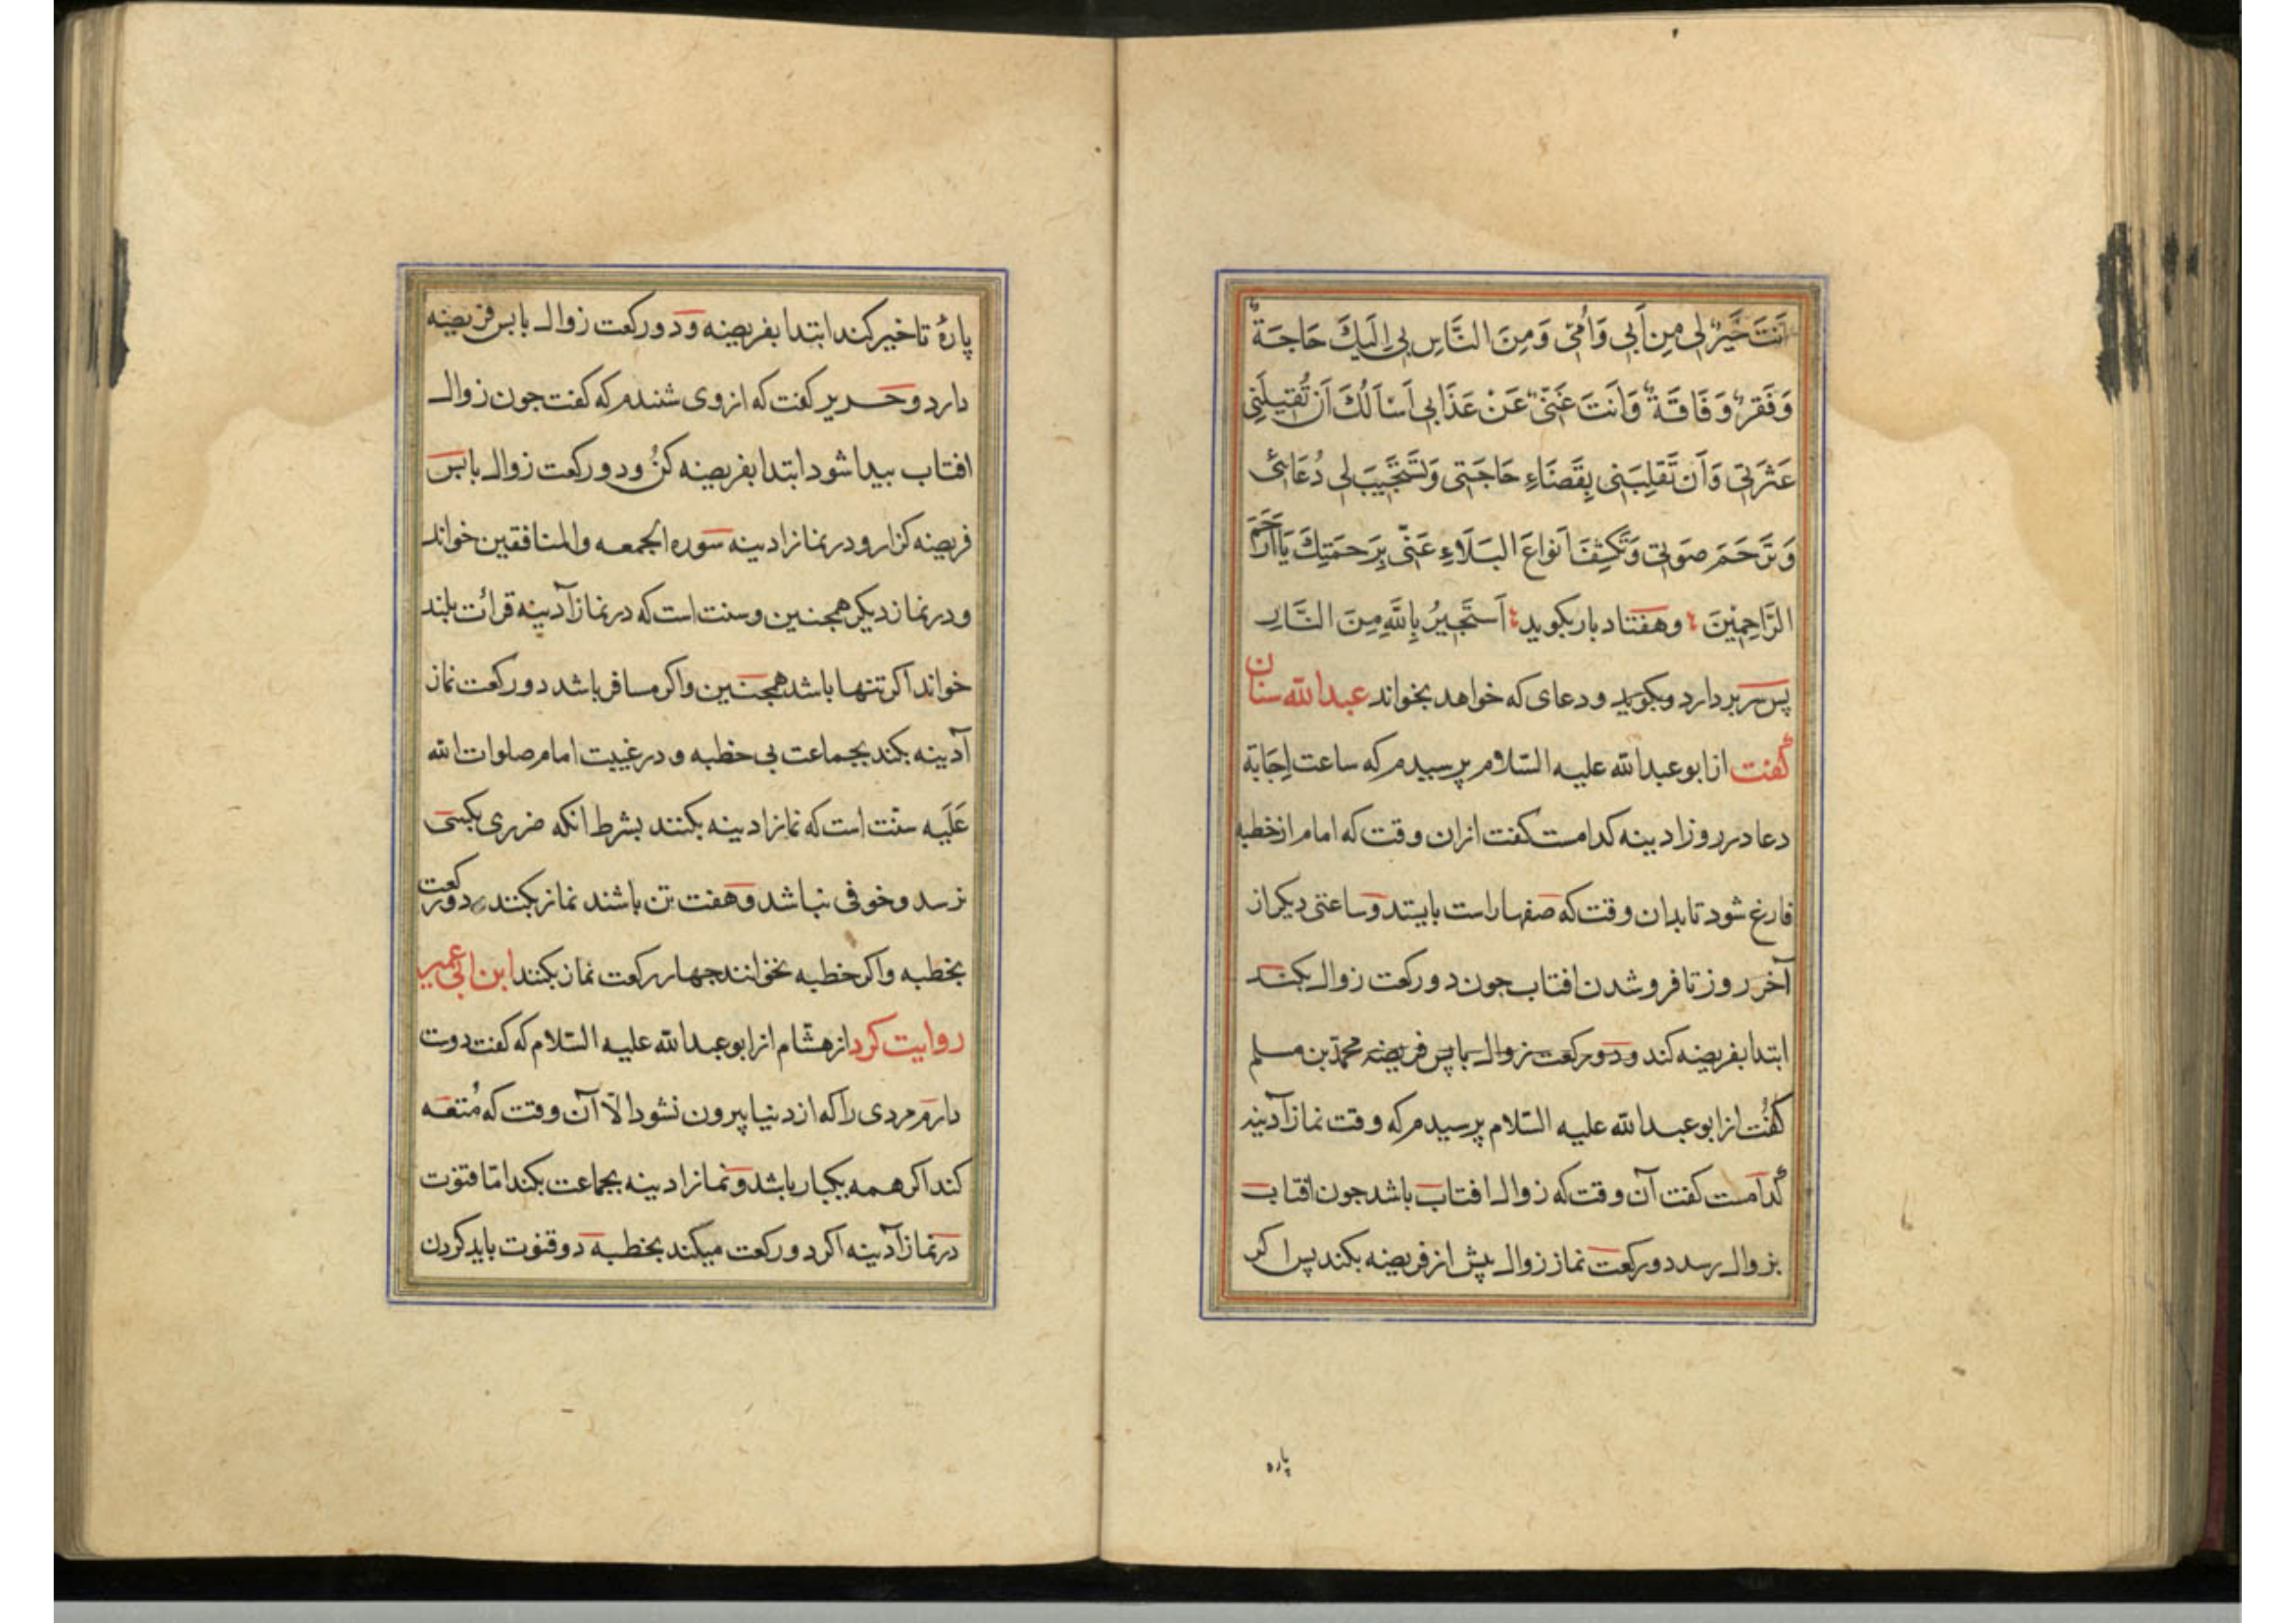 اَنتَ خَيرٌ لِی مِن اَبِی وَاُمّی وَمِنَ النَّاسِ بِی اِلَيكَ حَاجَةٌ
وَفَقرٌ وَفَاقَةٌ وَاَنتَ غَنیٌّ عَنْ عَذَابِی اَسْاَلُكَ اَن تُقيلَنِی
عَثرَتی وَاَن تَقلِبَنی بِقَضَاءِ حَاجَتی وَتَستَجيبَ لِی دُعَائی
وَتَرحَمَ صَوتی وَتَكشِفَ اَنواعَ البَلَاءِ عَنّی بِرَحمَتِكَ يَا اَرحَمَ
الرَّاحِمِينَ وهفتاد بار بكويد اَستَجيرُ بِاللَّهِ مِنَ النَّارِ
پس سر بردارد وبكويد ودعای كه خواهد بخواند عبدالله سنان
كفت از ابوعبدالله عليه السّلام پرسيدم كه ساعت اِجَابَة
دعا در روز ادينه كدامست كفت ازان وقت كه امام از خطبه
فارغ شود تا بدان وقت كه صفها راست بايستد وساعتی ديكر از
آخر روز تا فروشدن افتاب جون دو ركعت زوال بكند
ابتدا بفريضه كند ودو ركعت زوال با پس فريضه محمّد بن مسلم
كفت از ابوعبدالله عليه السّلام پرسيدم كه وقت نماز آدينه
كدامست كفت آن وقت كه زوال افتاب باشد جون افتاب
بزوال رسد دو ركعت نماز زوال پيش از فريضه بكند پس اكر
پاره
پارهٔ تاخير كند ابتدا بفريضه ودو ركعت زوال با پس فريضه
دارد وحرير كفت كه از وی شندم كه كفت جون زوال
افتاب پيدا شود ابتدا بفريضه كُن ودو ركعت زوال با پس
فريضه كزار ودر نماز ادينه سوره الجمعه والمنافقين خواند
ودر نماز ديكر همجنين وسنت است كه در نماز آدينه قرائت بلند
خواند اكر تنها باشد همجنين واكر مسافر باشد دو ركعت نماز
آدينه بكند بجماعت بی خطبه ودر غيبت امام صلوات الله
عَلَيه سنّت است كه نماز ادينه بكنند بشرط انكه ضرری بكسی
نرسد وخوفی نباشد وهفت تن باشند نماز بكنند دو ركعت
بخطبه واكر خطبه نخوانند جهار ركعت نماز بكنند ابن ابی عمير
روايت كرد از هشّام از ابوعبدالله عليه السّلام كه كفت دوت
دارم مردی را كه از دنيا بيرون نشود الّا آن وقت كه مُتعَه
كند اكر همه يكبار باشد ونماز ادينه بجماعت بكند امّا قنوت
در نماز آدينه اكر دو ركعت ميكند بخطبه دو قنوت بايد كردن